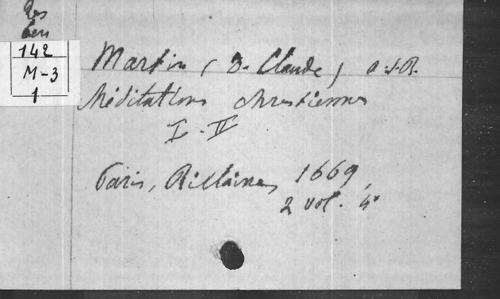 Res
142
M-3
1
Martin (D. Claude)
Méditations chrestiennes
I-II
Paris, Billaine, 1669,
2 vol. 4°